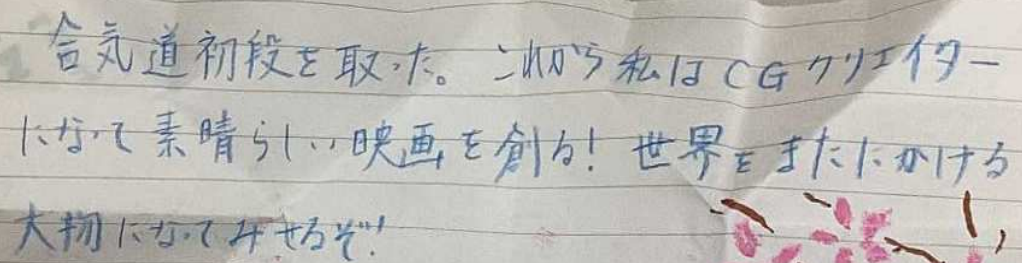 合気道初段を取った。これから私はCGクリエイター
になって素晴らしい映画を創る！世界をまたにかける
大物になってみせるぞ！